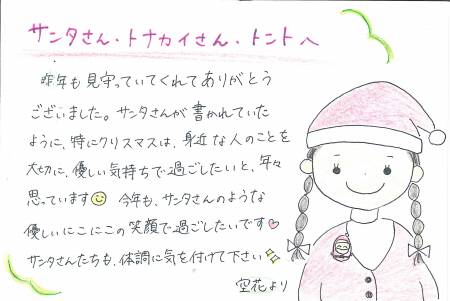 サンタさん・トナカイさん・トントへ
昨年も見守っていてくれてありがとう
ございました。サンタさんが書かれていた
ように、特にクリスマスは、身近な人のことを
大切に、優しい気持ちで過ごしたいと、年々
思っています 今年も、サンタさんのような
優しいにこにこの笑顔で過ごしたいです
サンタさんたちも、体調に気を付けて下さい
空花より